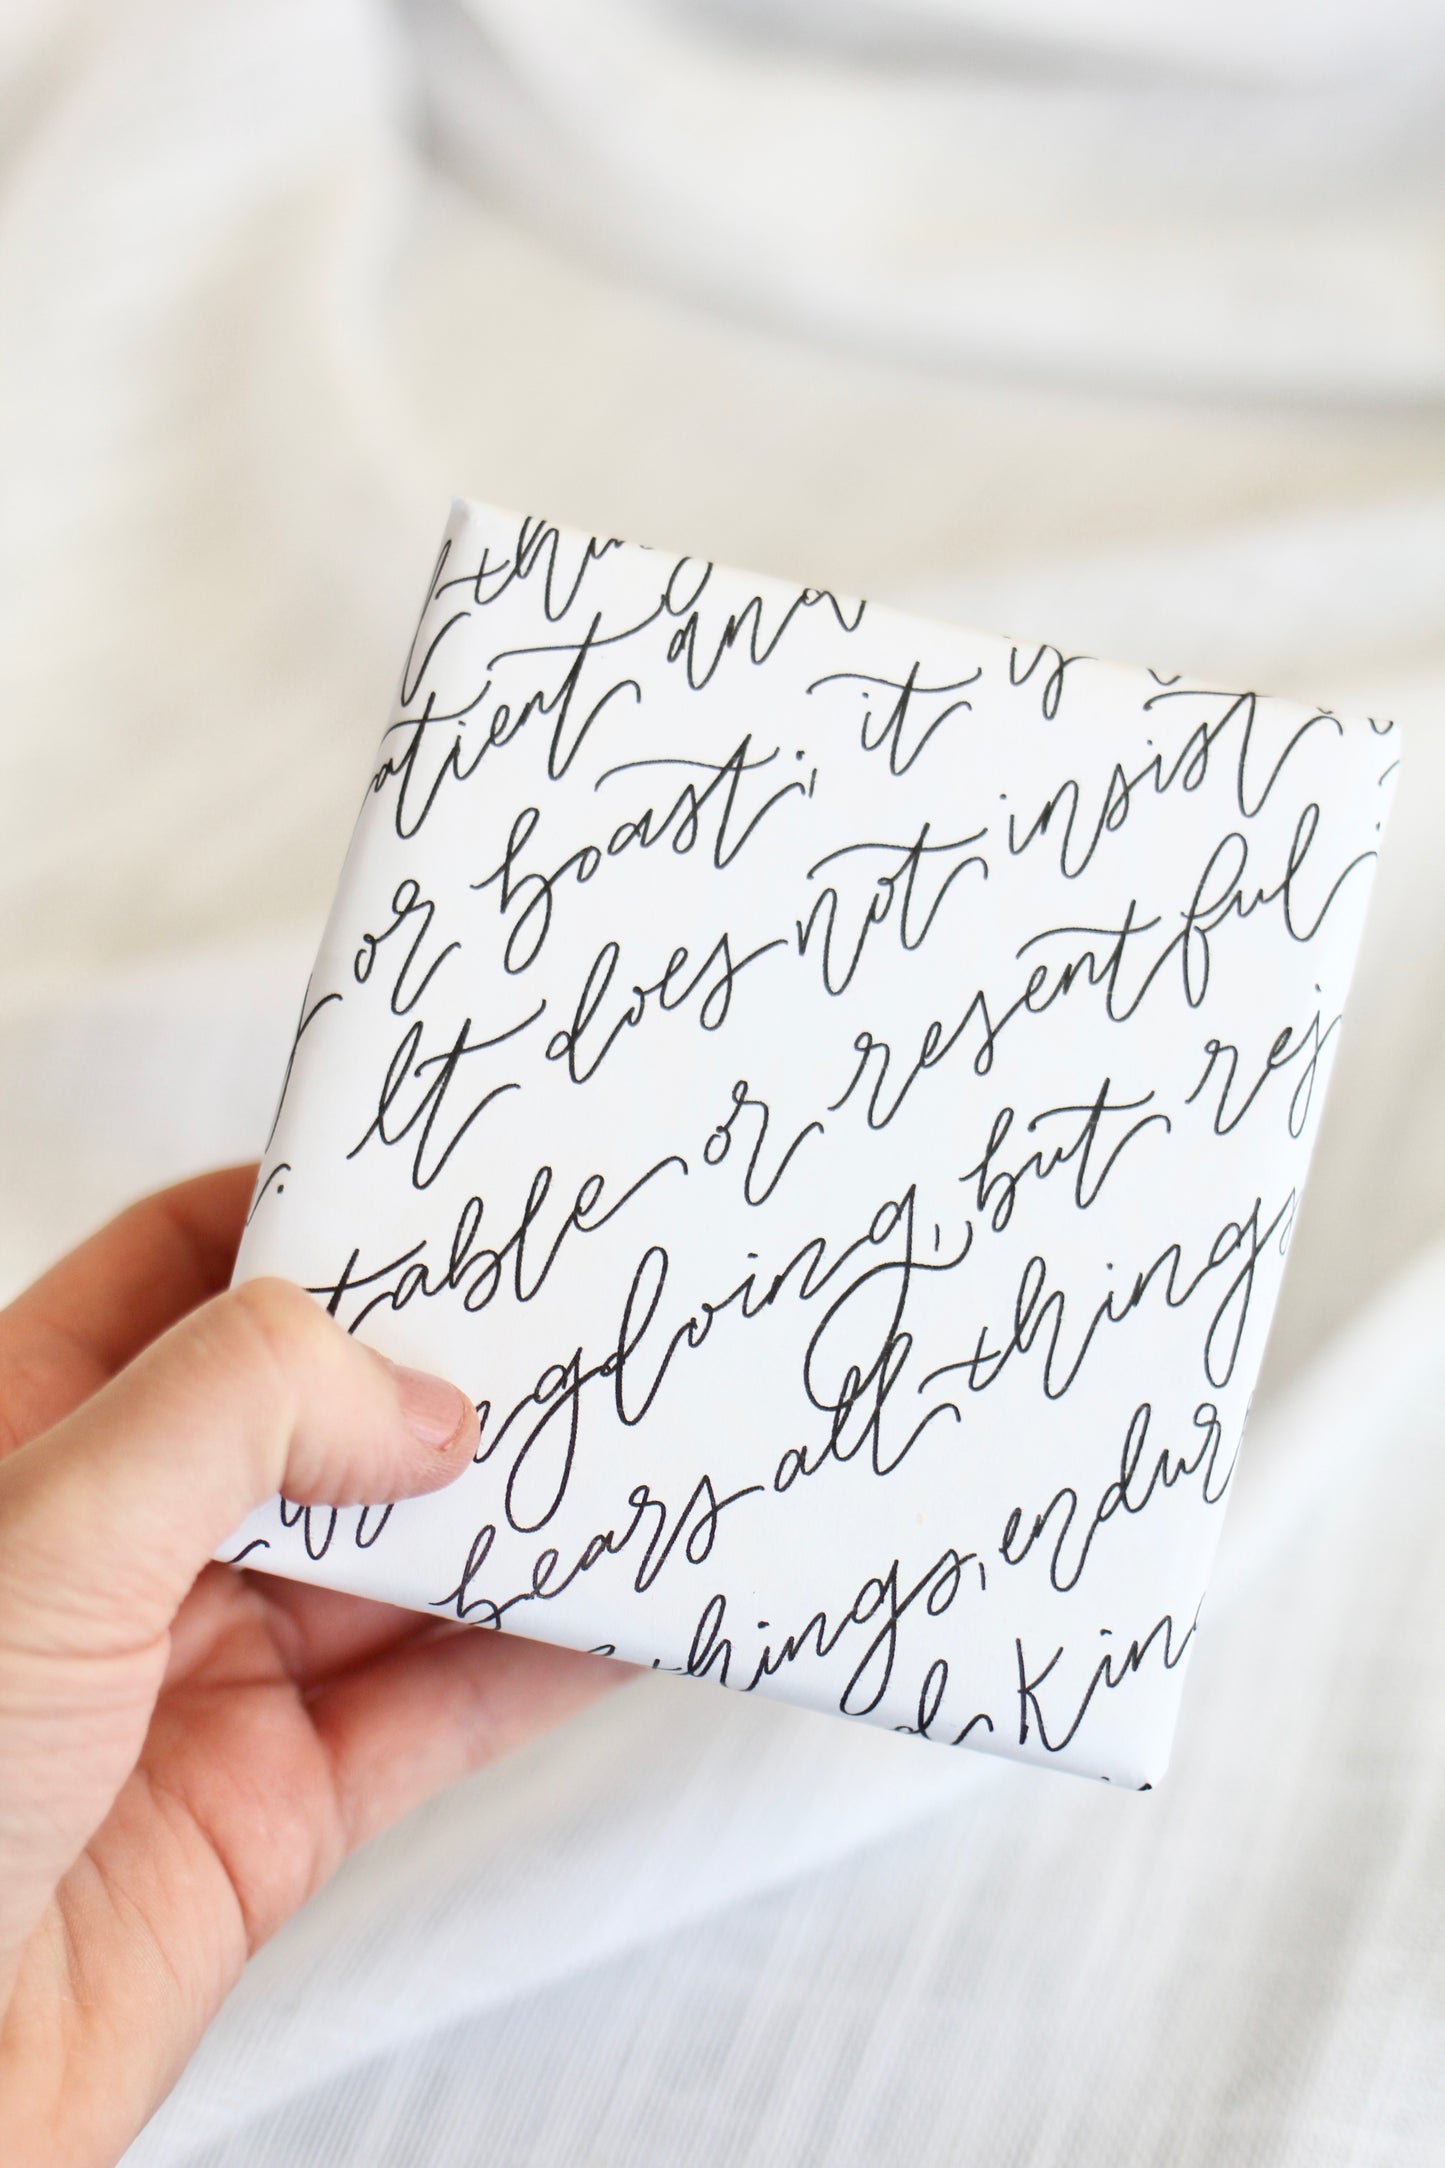 things
atient and is
or boast; it
It does not insist
table or resentful
ngdoing, but rej
bears all things
hings, endur
d kin